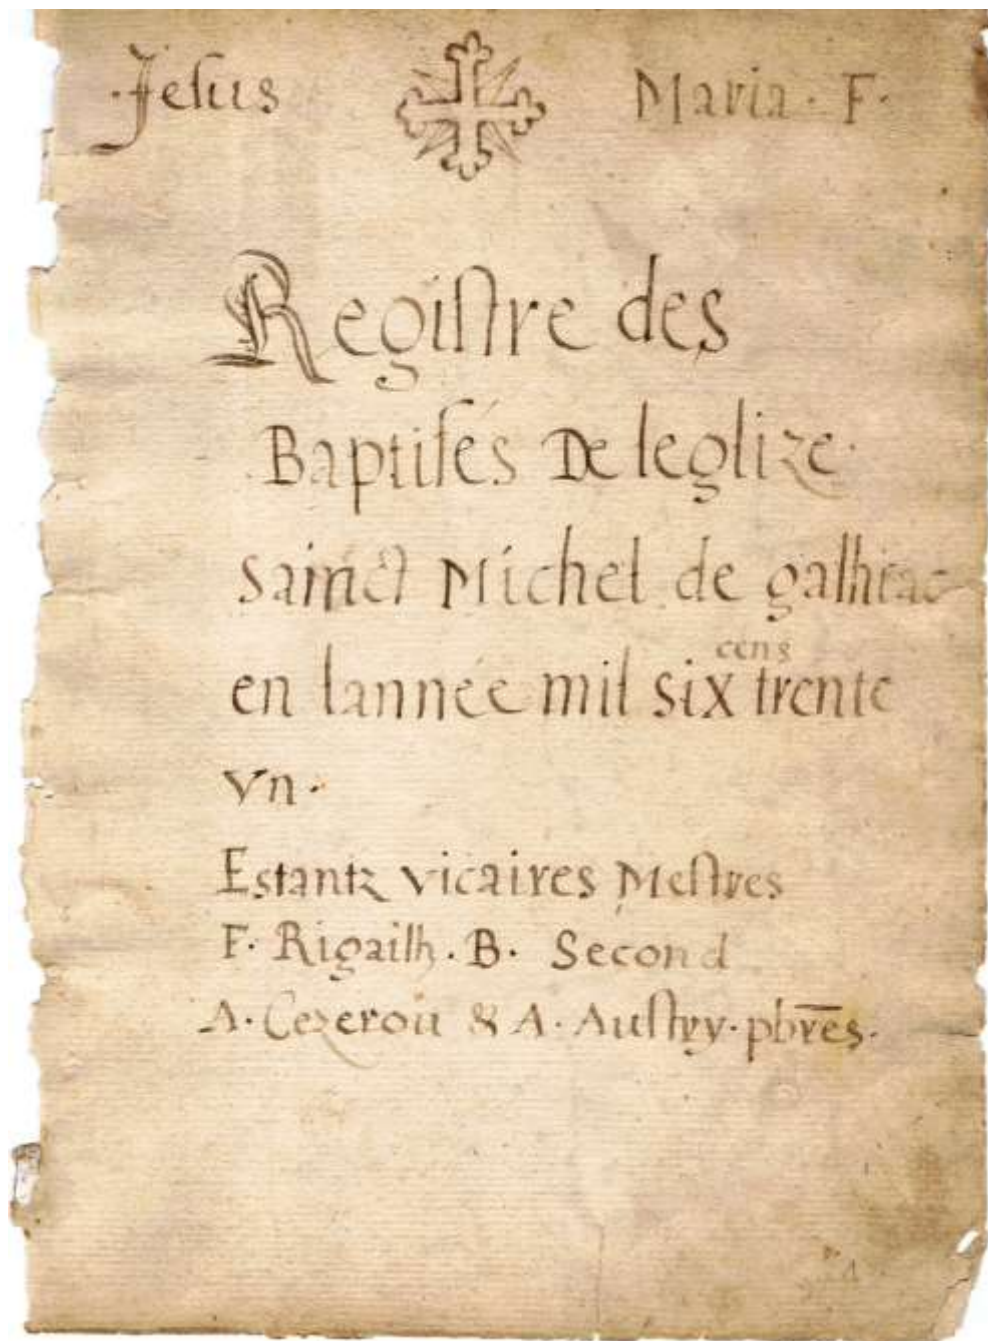 Jesus Maria · F ·
Registre des
Baptisés De leglize
sainct Michel de galhiac
en lannée mil six cens trente
vn ·
Estantz vicaires Mestres
F · Rigailh · B · Second
A · Cezerou & A · Austry · pbr̄es ·